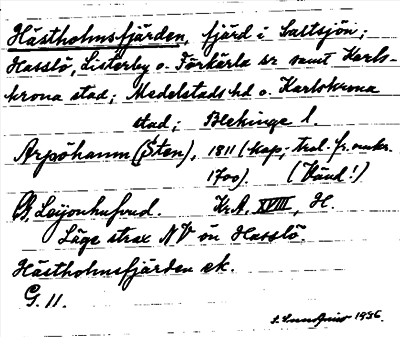 Hästholmsfjärden, fjärd i Saltsjön;
Hasslö, Listerby o. Förkärla sr samt Karls-
krona stad; Medelstads hd o. Karlskrona
stad; Blekinge l.
Arpöhamn (Sten), 1811 (kap; trol. fr. omkr.
1700). (Känd!)
G. Leijonhufvud. Kr.A. XVIII, H.
Läge strax NV om Hasslö.
Hästholmsfjärden ek.
G. 11.
1936.